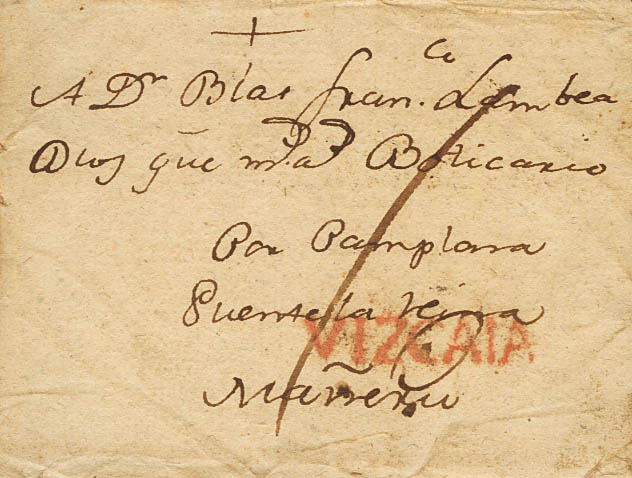 A Dn Blas Franco Lambea
Dios gue ms as Boticario
Por Pamplona
Puente la Reina
VIZCAIA
Mañeru